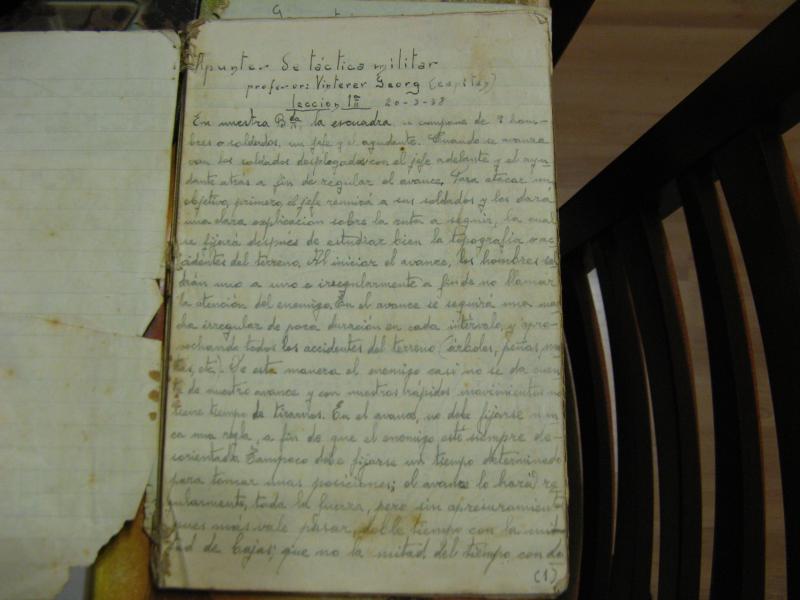 Apuntes de táctica militar
profesor: Vinterer Georg (capitán)
Lección 1ª 20-3-38
En nuestra Bda, la escuadra se compone de 8 hom-
bres o soldados, un jefe y el ayudante. Cuando se avanza
van los soldados desplegados con el jefe adelante y el ayu-
dante atras a fin de regular el avance. Para atacar un
objetivo, primero, el jefe reunirá a sus soldados y les dará
una clara explicación sobre la ruta a seguir, la cual
se fijará después de estudiar bien la topografía o ac-
cidentes del terreno. Al iniciar el avance, los hombres sal-
drán uno a uno e irregularmente a fin de no llamar
la atención del enemigo. En el avance se seguirá una mar-
cha irregular de poca duración en cada intervalo, y apro-
vechando todos los accidentes del terreno (árboles, peñas,
etc). De esta manera el enemigo casi no se da cuen-
ta de nuestro avance y con nuestros rápidos movimientos no
tiene tiempo de tirarnos. En el avance, no debe fijarse nun-
ca una regla, a fin de que el enemigo esté siempre de-
sorientado. Tampoco debe fijarse un tiempo determinado
para tomar unas posiciones; el avance lo hará re-
gularmente, toda la fuerza, pero sin apresuramiento
pues más vale pasar doble tiempo con la mi-
tad de bajas, que no la mitad del tiempo con do-
(1)